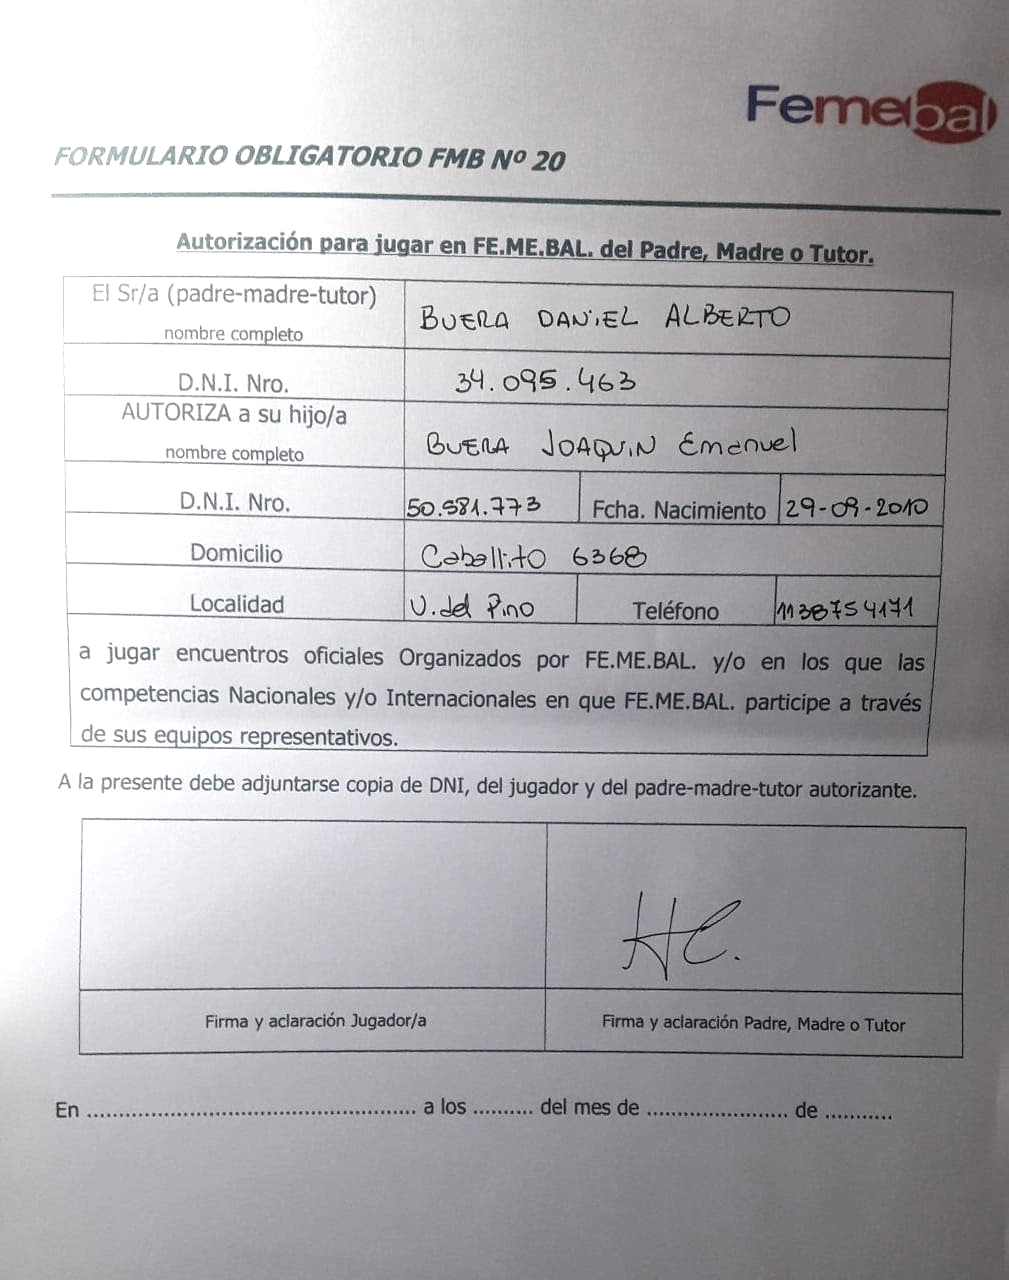 Femebal
FORMULARIO OBLIGATORIO FMB Nº 20
Autorización para jugar en FE.ME.BAL. del Padre, Madre o Tutor.
El Sr/a (padre-madre-tutor)
nombre completo
BUERA DANIEL ALBERTO
D.N.I. Nro.
34.095.463
AUTORIZA a su hijo/a
nombre completo
BUERA JOAQUIN Emanuel
D.N.I. Nro.
50.581.773
Fcha. Nacimiento
29-09-2010
Domicilio
Caballito 6368
Localidad
V. del Pino
Teléfono
1138754171
a jugar encuentros oficiales Organizados por FE.ME.BAL. y/o en los que las
competencias Nacionales y/o Internacionales en que FE.ME.BAL. participe a través
de sus equipos representativos.
A la presente debe adjuntarse copia de DNI, del jugador y del padre-madre-tutor autorizante.
Firma y aclaración Jugador/a
Firma y aclaración Padre, Madre o Tutor
En .................................................... a los .......... del mes de ...................... de ...........